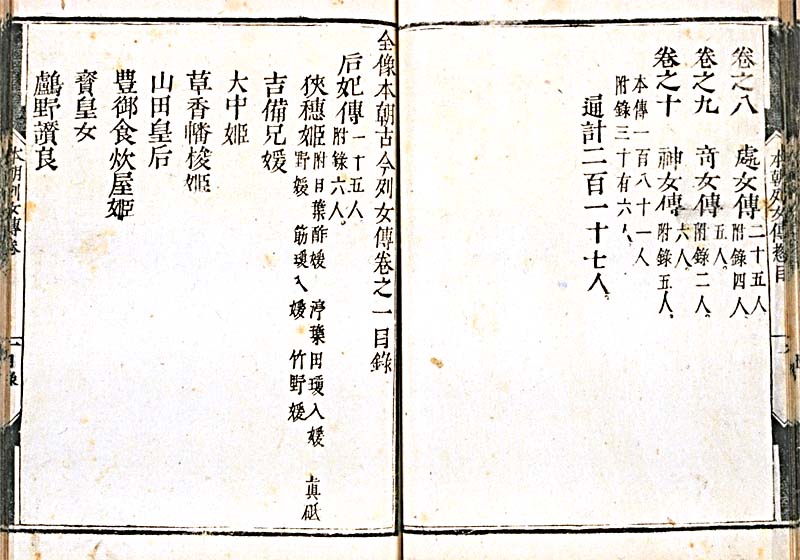 卷之八　處女傳二十五人附錄四人
卷之九　奇女傳五人附錄二人。
卷之十　神女傳六人。附錄五人。
本傳一百八十一人
附錄三十有六人
通計二百一十七人。
本朝列女傳卷目
全像本朝古今列女傳卷之一目錄
后妃傳一十五人附錄六人。
狹穗姬附日葉酢媛　渟葉田瓊入媛　真砥
野媛　筋瓊入媛　竹野媛
吉備兄媛
大中姬
草香幡梭姬
山田皇后
豊御食炊屋姬
寶皇女
鸕野讚良
本朝列女傳卷